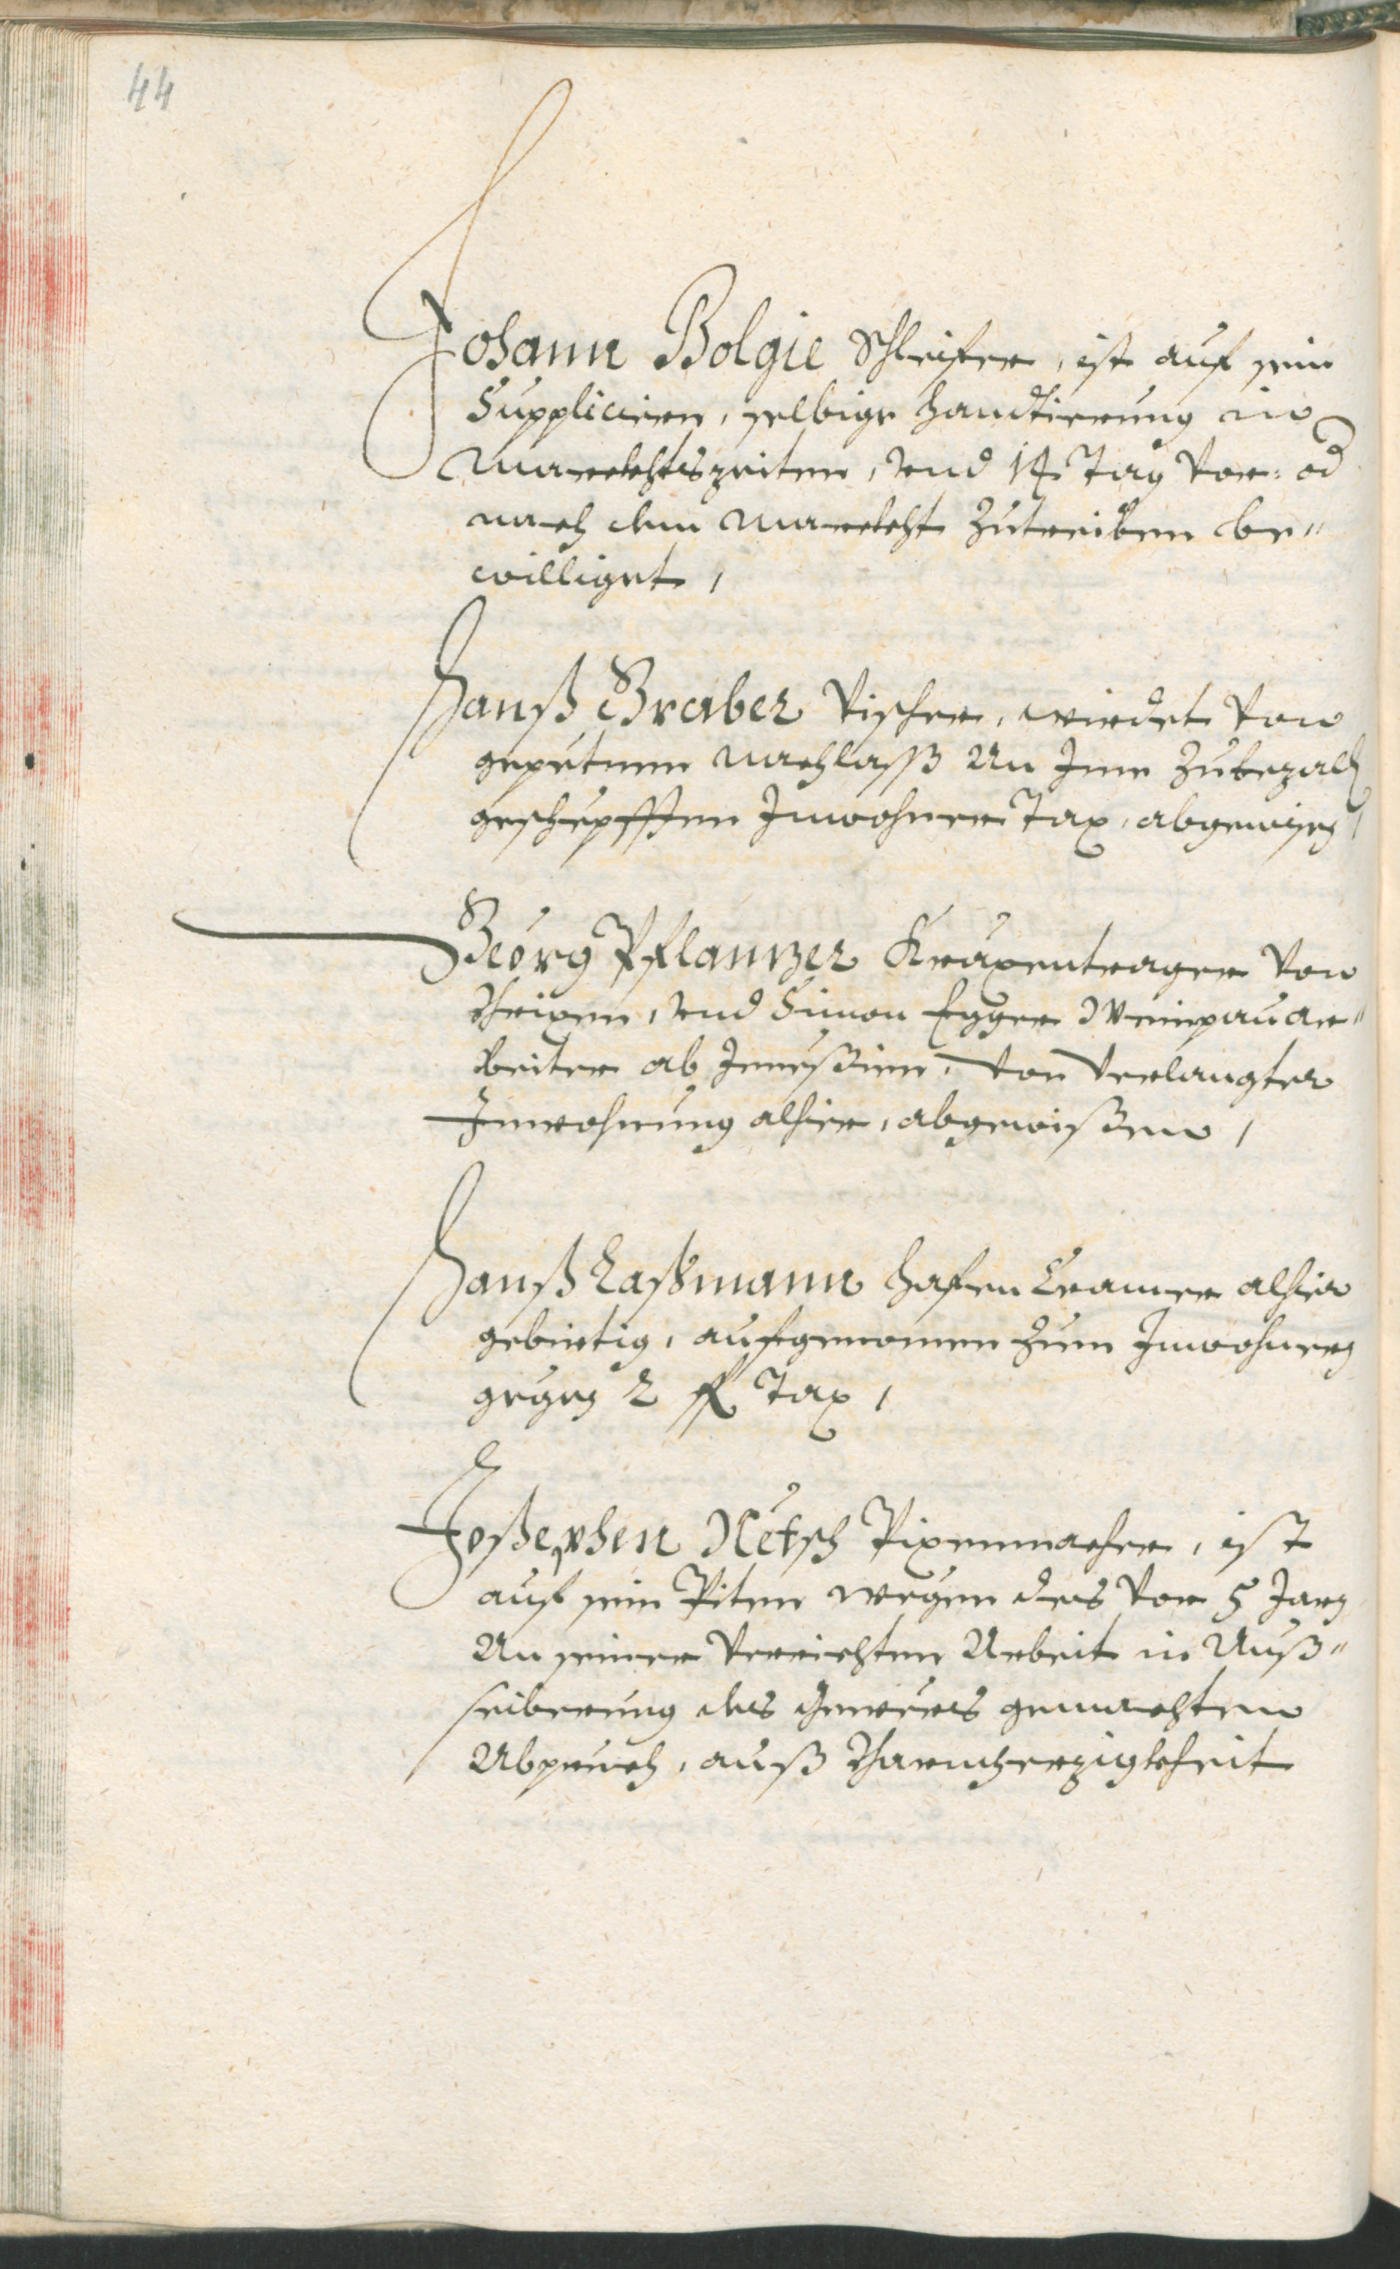 44
Johann Bolgie Schleifer, ist auf sein
Supplicieren, selbige handtierung in
marckhtszeiten, vnd 14 Tag vor: od
nach dem marckht zutreiben be„
williget,
Hanß Graber Vischer, wirdet von
gepetnem nachlaß An Jme zubezaln
geschepfften Jnwohner Tax, abgewisen,
Georg Pflanzer Kraxentrager von
Brixen, vnd Simon Egger Weinpauar„
beiter ab von verlangter
Jnwohnung alhier, abgewißen,
Hanß Laßmann hafen Cramer alhier
gebirtig, aufgenomen zum Jnwohner
gegen 2 fl Tax,
Joßephen Netsch Pixenmacher, ist
auf sein Piten wegen des vor 5 Jarn
An seiner verrichten Arbeit in Auß„
seiberung des gewers gemachten
Abpruch, auß Barmherzigkheit